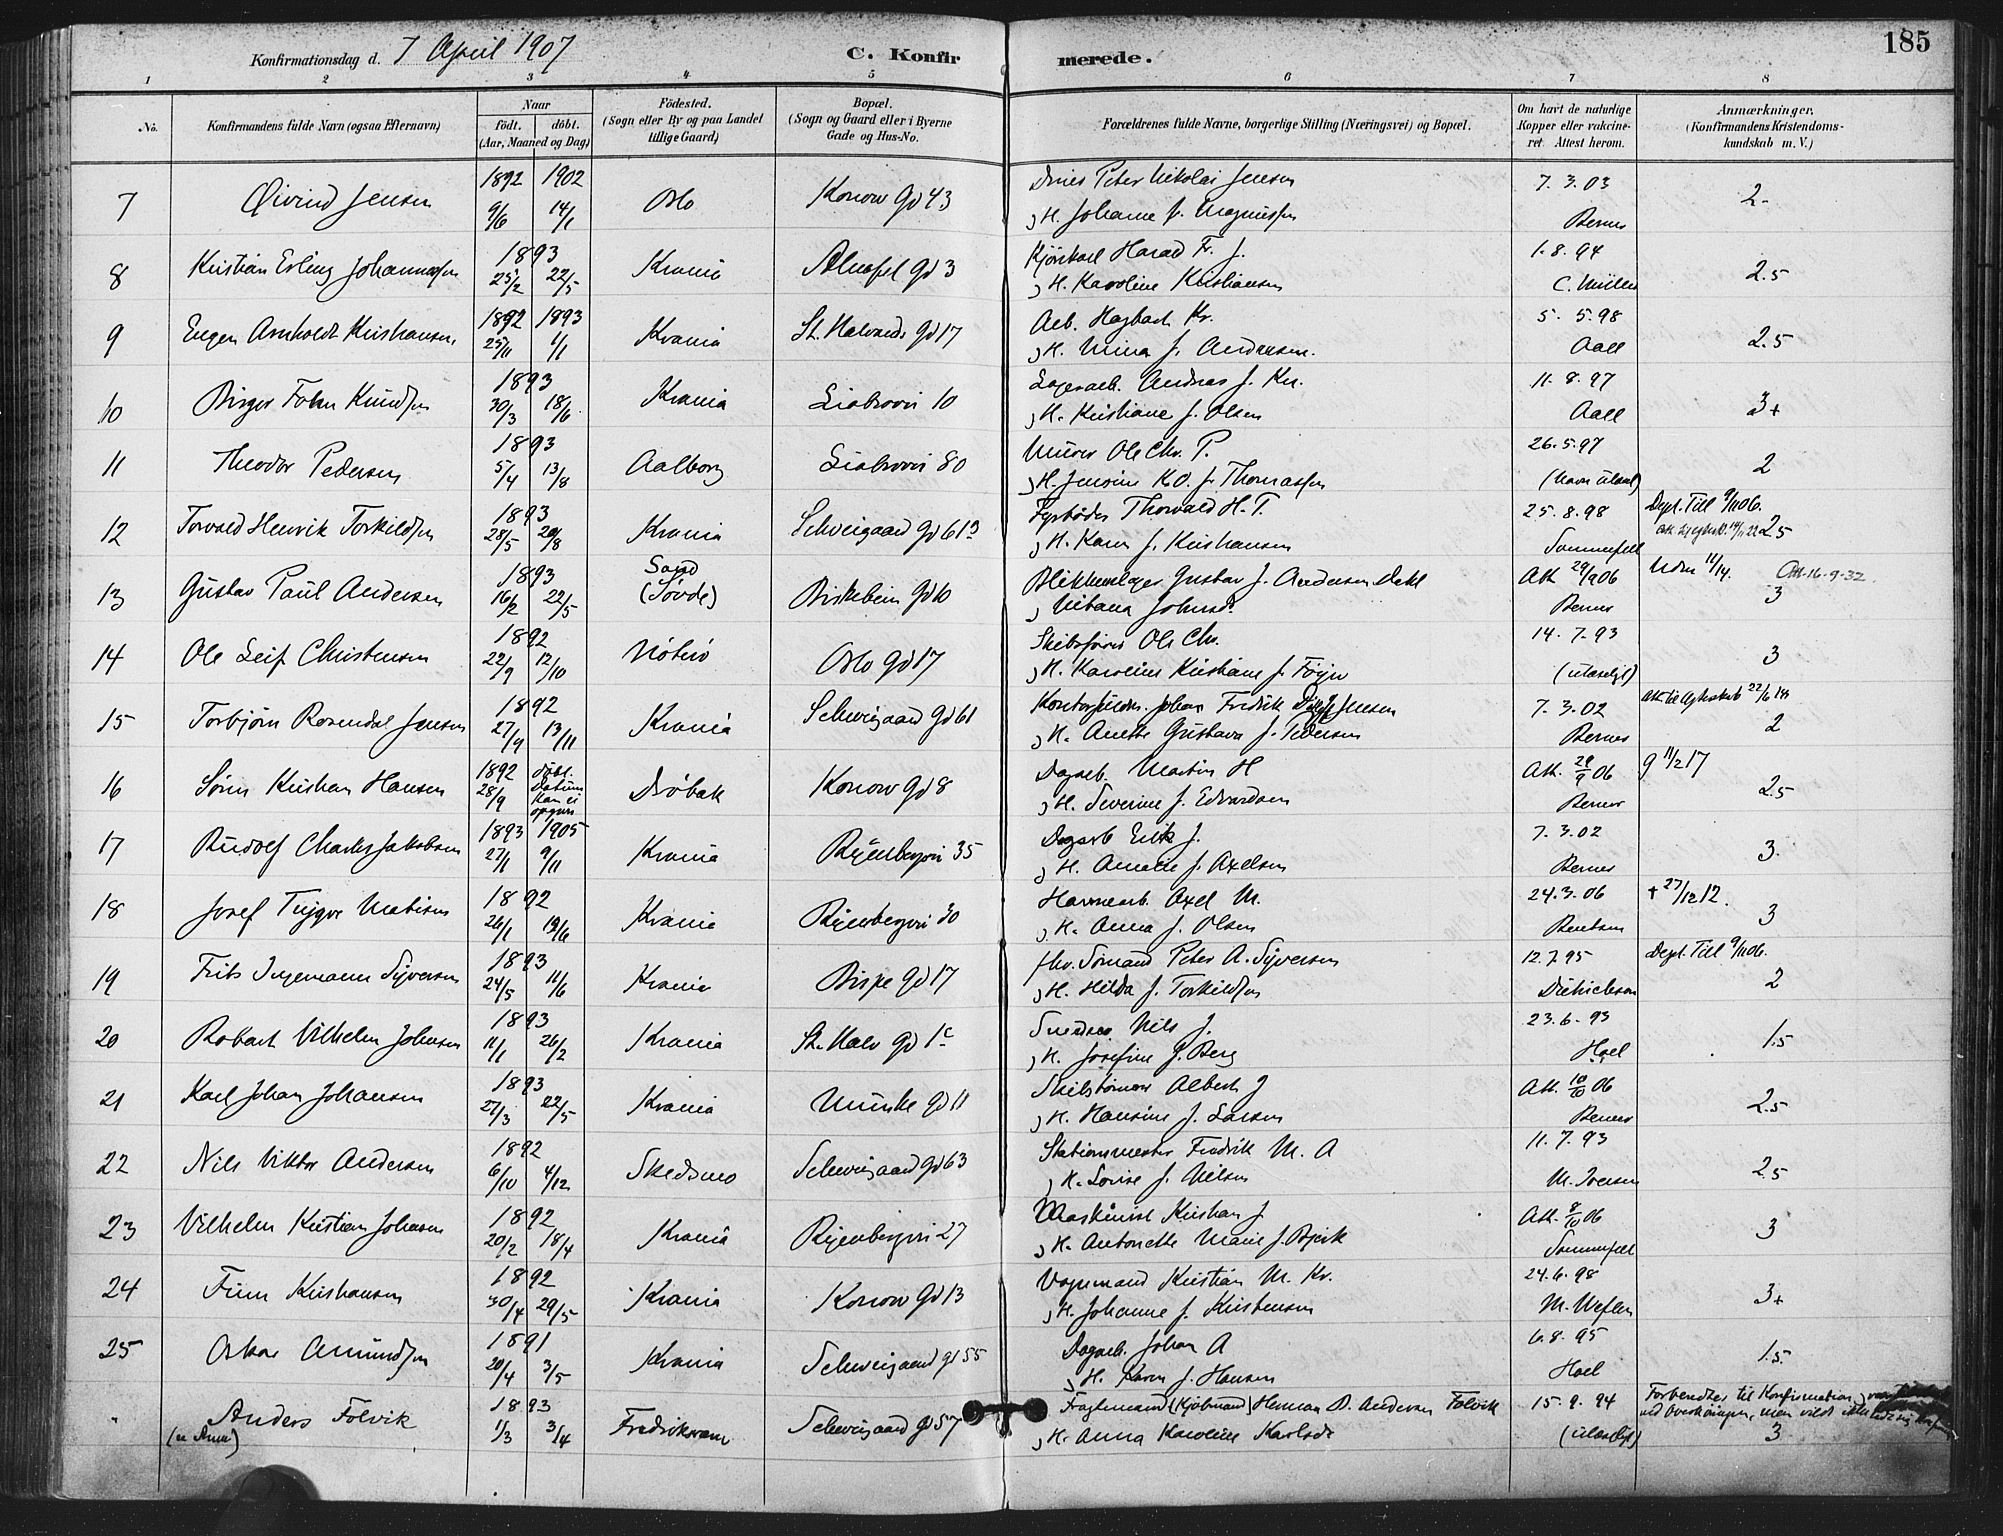 185
Konfirmationsdag d. 7 April 1907
C. Konfirmerede.
1 2 3 4 5 6 7 8
No.
Konfirmandens fulde Navn (ogsaa Efternavn)
Naar
födt. döbt.
(Aar, Maaned og Dag)
Födested.
(Sogn eller By og paa Landet
tillige Gaard)
Bopæl.
(Sogn og Gaard eller i Byerne
Gade og Hus-No.
Forældrenes fulde Navne, borgerlige Stilling (Næringsvei) og Bopæl.
Om havt de naturlige
Kopper eller vakcine-
ret Attest herom.
Anmærkninger,
(Konfirmandens Kristendoms-
kundskab m. V.)
1892 1902
7 Øivind Jensen 9/6 14/1 Oslo Konow Gd 43
Peter Nikolai Jensen 7.3.03
H. Johanne f. Magnussen Berner 2-
1893
8 Kristian Erling Johannessen 25/2 22/5 Krania Gd 3
Harald Fr. J. 1.8.94
H. Karoline Kristiansen C. Müller 2.5
1892 1893
9 Eugen Arnholdt Kristiansen 25/11 1/1 Krania St. Halvards Gd 17
Arb. Hagbart Kr. 5.5.98
H. Mina f. Andersen. Aall 2.5
1893
10 Birger Knudsen 30/3 18/6 Krania Liabrovei 10
Lagerarb. Andreas J. Kn. 11.8.97
H. Kristiane f. Olsen Aall 3+
1893
11 Theodor Pedersen 5/4 13/8 Aalborg Liabrovei 80
Murer Ole Chr. P. 26.5.97
H. K.O. f. Thomassen (Navn ulæsel) 2
1893
12 Torvald Henrik Torkildsen 28/5 20/8 Krania Schweigaard Gd 61
Fyrböder Thorvald H. T. 25.8.98 Dept. Till 9/11 06.
H. Karen f. Kristiansen Sommerfelt 2.5
1893 Sand
13 Gustav Paul Andersen 16/2 22/5 Birkebein Gd 10
Blikkenslager Gustav J. Andersen Dahl Att 29/9 06 Att. 16-9-32.
Johnsd. Berner 3
1892
14 Ole Leif Christensen 22/9 12/10 Nöterö Oslo Gd 17
Skibsförer Ole Chr. 14.7.93
H. Karoline Kristiane f. Föyn (ulæseligt) 3
1892
15 Torbjörn Rosendal Jensen 27/9 13/11 Krania Schweigaard Gd 61
Johan Fredrik Jensen 7.3.02
H. Anette Gustava f. Pedersen Berner 2
1892 döbt.
16 Sören Kristian Hansen 28/9 Datum kan ei opgives Dröbak Konow Gd 8
Dagarb. Martin H Att. 29/9 06 g 11/2 17
H. Severine f. Edvardsen Berner 2.5
1893 1905
17 Rudolf Charles Jakobsen 27/1 9/11 Krania Ryenbergvei 35
Dagarb Erik J. 7.3.02
H. Amalie f. Axelsen Berner 3.
1892
18 Josef Trygve Matisen 26/1 19/6 Krania Ryenbergvei 30
Havnearb. Axel M. 24.3.06 † 27/12 12.
H. Anna f. Olsen Berntsen 3
1893
19 Frits Ingemann Syversen 24/5 11/6 Krania Bispe Gd 17
fhv. Sömand Peter A. Syversen 12.7.95 Dept. Till 9/11 06.
H. Hilda f. Torkildsen Diedrichson 2
1893
20 Robert Vilhelm Johansen 11/1 26/2 Krania St. Halv Gd 1c
Nils J. 23.6.93
H. Josefine f. Berg Hoel 1.5
1893
21 Karl Johan Johansen 27/3 22/5 Krania Munke Gd 11
Albert J Att. 10/10 06
H. Hansine f. Larsen Berner 2.5
1892
22 Nils Viktor Andersen 6/10 4/12 Skedsmo Schweigaard Gd 63
Stationsmester Fredrik M. A 11.7.93
H. Lovise f. Nilsen M. Iversen 2.5
1892
23 Vilhelm Kristian Johansen 20/2 18/4 Krania Ryenbergvei 27
Maskinist Kristian J Att. 8/10 06
H. Antonette Marie f. Bjerk Sommerfelt 3
1892
24 Finn Kristiansen 30/4 29/5 Krania Konow Gd 13
Vognmand Kristian M. Kr. 24.6.98
H. Johanne f. Kristensen 3+
1891
25 Oskar Amundsen 20/4 3/5 Krania Schweigaard gd 55
Dagarb. Johan A 6.8.95
H. Karen f. Hansen Hoel 1.5.
1893
" Anders Folvik 1/3 3/4 Fredriksværn Schweigaard gd 57
Fragtemand (Kjöbmand) Herman B. Andersen Folvik 15.9.94
H. Anna Karoline Karlsd. (ulæseligt)
Forberedtes til Konfirmation,
ved Overhöringen, men vilde ikke
3